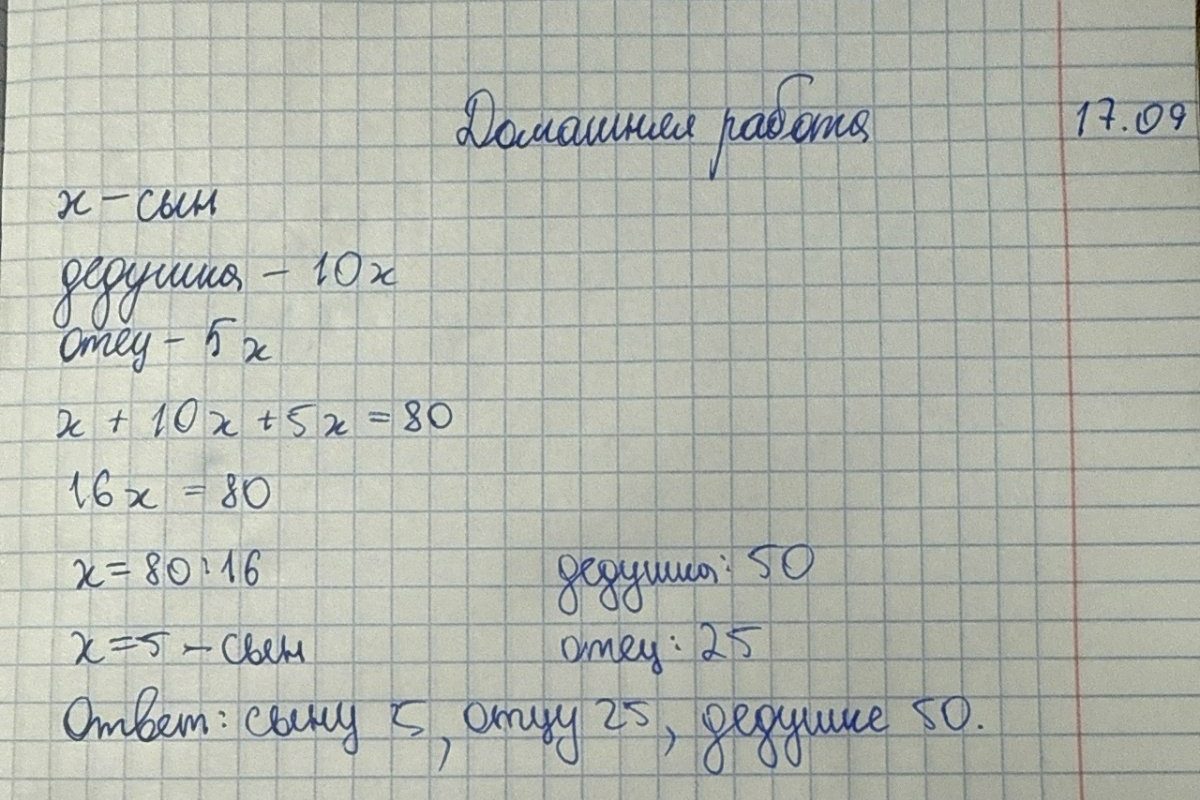 Домашняя работа 17.09
х – сын
дедушка – 10х
отец – 5х
х + 10х + 5х = 80
16х = 80
х = 80 : 16 дедушка: 50
х = 5 – сын отец: 25
Ответ: сыну 5, отцу 25, дедушке 50.